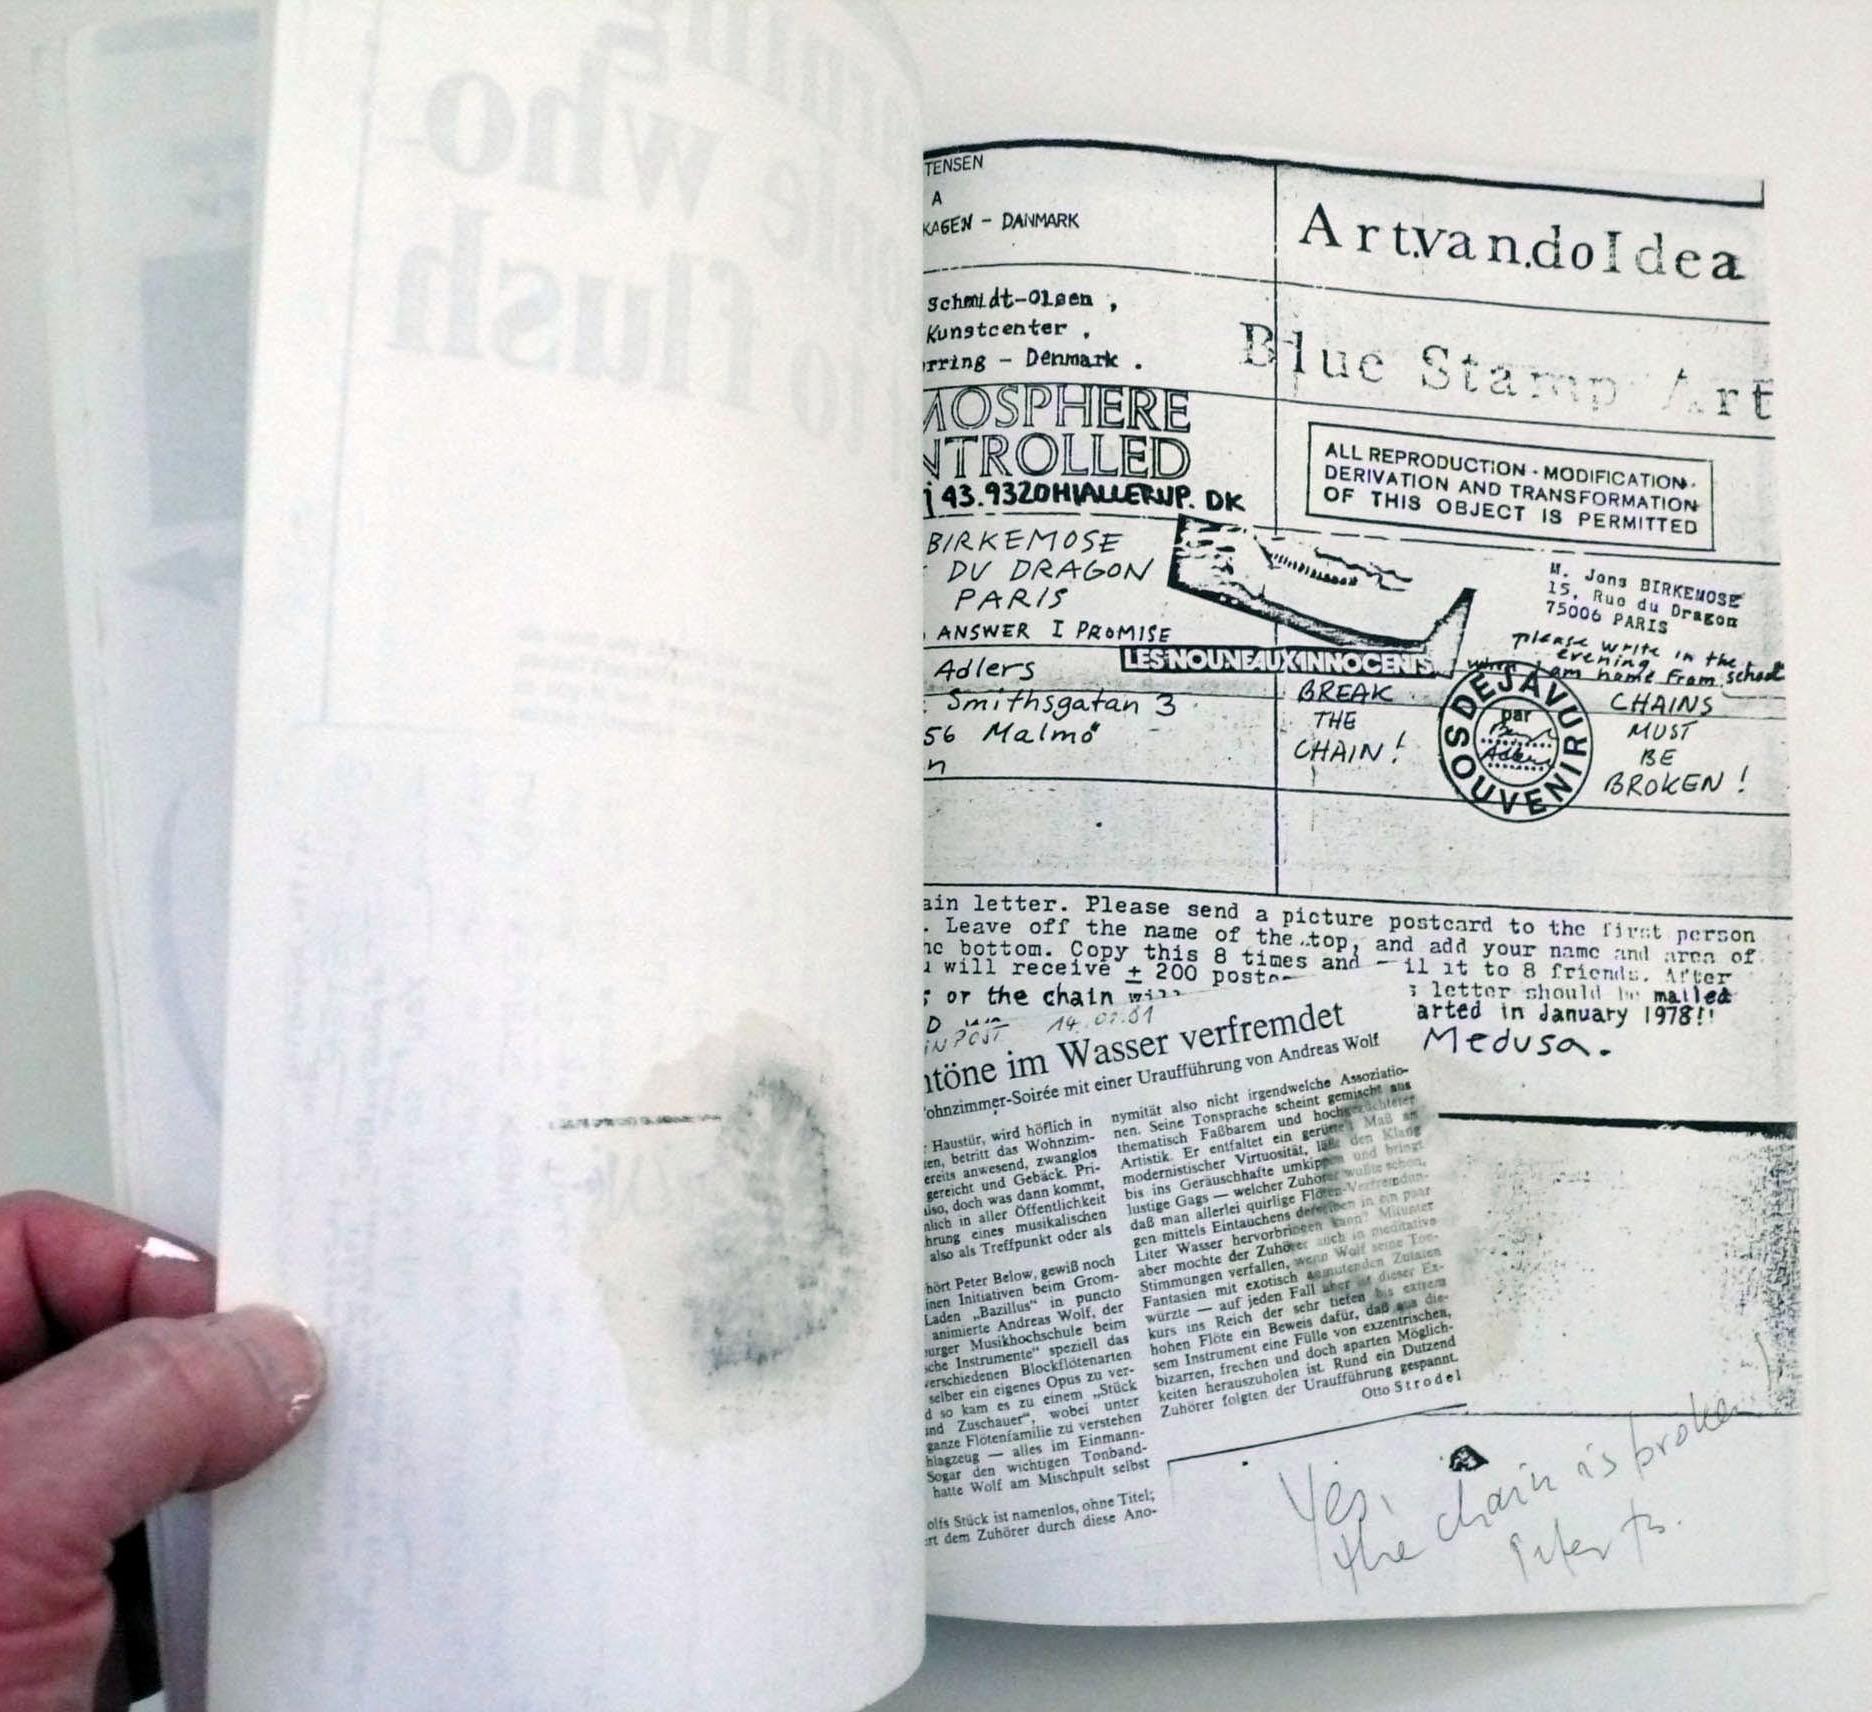 who
flush
TENSEN
A
KAGEN - DANMARK
Art.van.doIdea
Schmidt-Olsen ,
Kunstcenter .
rring - Denmark .
Blue Stamp Art
MOSPHERE
NTROLLED
43.9320HJALLERUP. DK
ALL REPRODUCTION · MODIFICATION·
DERIVATION AND TRANSFORMATION
OF THIS OBJECT IS PERMITTED
BIRKEMOSE
DU DRAGON
PARIS
ANSWER I PROMISE
LES NOUVEAUX INNOCENTS
M. Jens BIRKEMOSE
15, Rue du Dragon
75006 PARIS
please write in the
evening
when I am home from school
Adlers
Smithsgatan 3
56 Malmö
n
BREAK
THE
CHAIN !
DEJAVU
par
Adlers
SOUVENIR
CHAINS
MUST
BE
BROKEN !
ain letter. Please send a picture postcard to the first person
. Leave off the name of the top, and add your name and area of
he bottom. Copy this 8 times and il it to 8 friends. After
u will receive ± 200 postc
s letter should be mailed
; or the chain will
arted in January 1978!!
Medusa.
IN POST 14.07.81
ntöne im Wasser verfremdet
ohnzimmer-Soirée mit einer Uraufführung von Andreas Wolf
Haustür, wird höflich in
ten, betritt das Wohnzim-
ereits anwesend, zwanglos
gereicht und Gebäck. Pri-
also, doch was dann kommt,
nlich in aller Öffentlichkeit
hrung eines musikalischen
also als Treffpunkt oder als
hört Peter Below, gewiß noch
inen Initiativen beim Grom-
Laden „Bazillus" in puncto
animierte Andreas Wolf, der
burger Musikhochschule beim
sche Instrumente" speziell das
verschiedenen Blockflötenarten
selber ein eigenes Opus zu ver-
d so kam es zu einem „Stück
und Zuschauer", wobei unter
ganze Flötenfamilie zu verstehen
hlagzeug — alles im Einmann-
Sogar den wichtigen Tonband-
hatte Wolf am Mischpult selbst
olfs Stück ist namenlos, ohne Titel;
ert dem Zuhörer durch diese Ano-
nymität also nicht irgendwelche Assoziatio-
nen. Seine Tonsprache scheint gemischt aus
thematisch Faßbarem und hochgezüchteter
Artistik. Er entfaltet ein gerüttelt Maß an
modernistischer Virtuosität, läßt den Klang
bis ins Geräuschhafte umkippen und bringt
lustige Gags — welcher Zuhörer wußte schon,
daß man allerlei quirlige Flöten-Verfremdun-
gen mittels Eintauchens derselben in ein paar
Liter Wasser hervorbringen kann? Mitunter
aber mochte der Zuhörer auch in meditative
Stimmungen verfallen, wenn Wolf seine Ton-
Fantasien mit exotisch anmutenden Zutaten
würzte — auf jeden Fall aber ist dieser Ex-
kurs ins Reich der sehr tiefen bis extrem
hohen Flöte ein Beweis dafür, daß aus die-
sem Instrument eine Fülle von exzentrischen,
bizarren, frechen und doch aparten Möglich-
keiten herauszuholen ist. Rund ein Dutzend
Zuhörer folgten der Uraufführung gespannt.
Otto Strodel
Yes,
the chain is broken
Peter B.